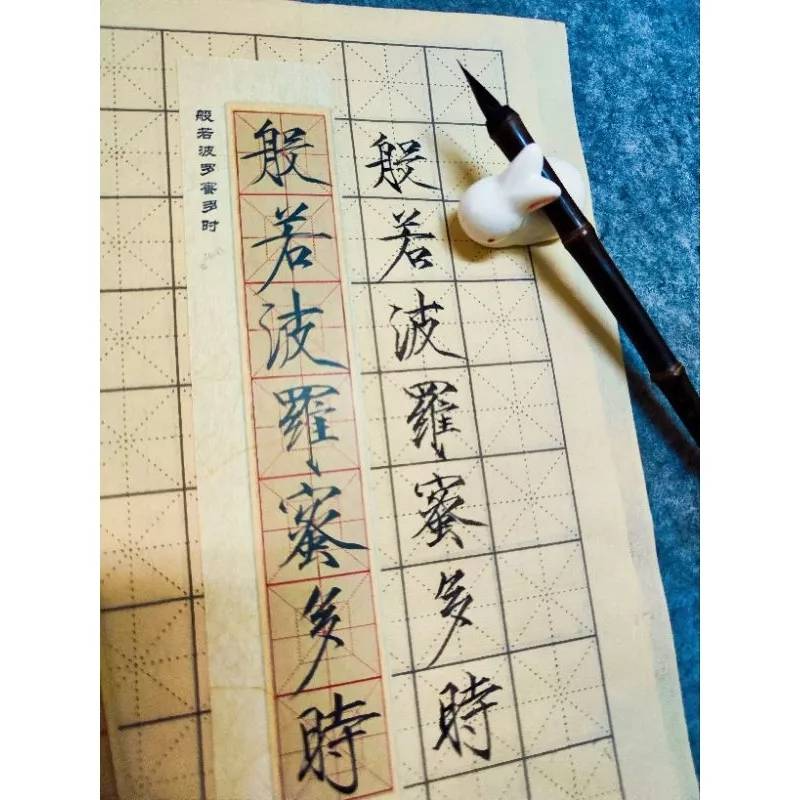 般若波罗蜜多时
般若波羅蜜多時
般若波羅蜜多時